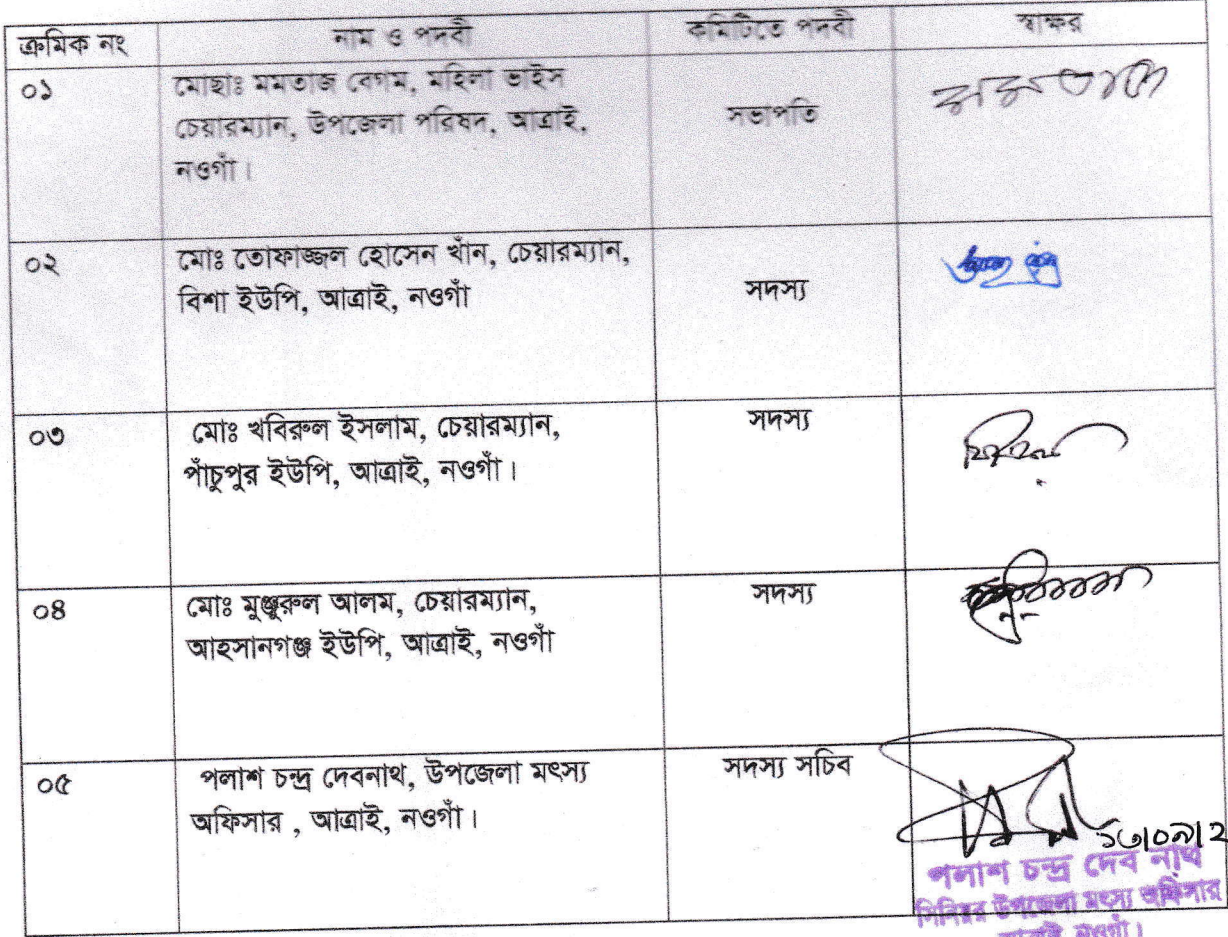 ক্রমিক নং নাম ও পদবী কমিটিতে পদবী স্বাক্ষর
০১ মোছাঃ মমতাজ বেগম, মহিলা ভাইস
চেয়ারম্যান, উপজেলা পরিষদ, আত্রাই, সভাপতি
নওগাঁ।
০২ মোঃ তোফাজ্জল হোসেন খাঁন, চেয়ারম্যান,
বিশা ইউপি, আত্রাই, নওগাঁ সদস্য
০৩ মোঃ খবিরুল ইসলাম, চেয়ারম্যান, সদস্য
পাঁচুপুর ইউপি, আত্রাই, নওগাঁ।
০৪ মোঃ মুঞ্জুরুল আলম, চেয়ারম্যান, সদস্য
আহসানগঞ্জ ইউপি, আত্রাই, নওগাঁ
০৫ পলাশ চন্দ্র দেবনাথ, উপজেলা মৎস্য সদস্য সচিব
অফিসার , আত্রাই, নওগাঁ।
পলাশ চন্দ্র দেব নাথ
সিনিয়র উপজেলা মৎস্য অফিসার
আত্রাই, নওগাঁ।